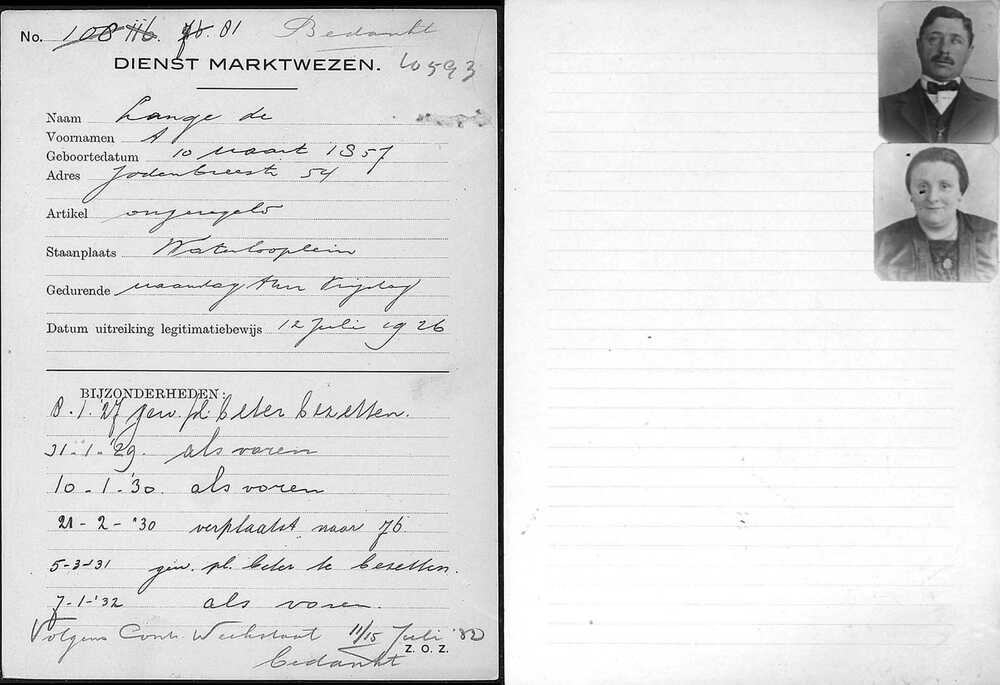 No. 108 116. 76. 81 Bedankt
DIENST MARKTWEZEN. 60593
Naam Lange de
Voornamen A
Geboortedatum 10 Maart 1857
Adres Jodenbreestr 54
Artikel ongeregeld
Staanplaats Waterlooplein
Gedurende Maandag t/m Vrijdag
Datum uitreiking legitimatiebewijs 12 Juli 1926
BIJZONDERHEDEN:
8.1.'27 gew. pl. beter bezetten.
31-1-'29. als voren
10-1-'30. als voren
21-2-'30 verplaatst naar 76
5-3-'31 gew. pl. beter te bezetten.
7-1-'32 als voren.
Volgens Contr. Weekstaat 11/15 Juli '32
bedankt Z.O.Z.